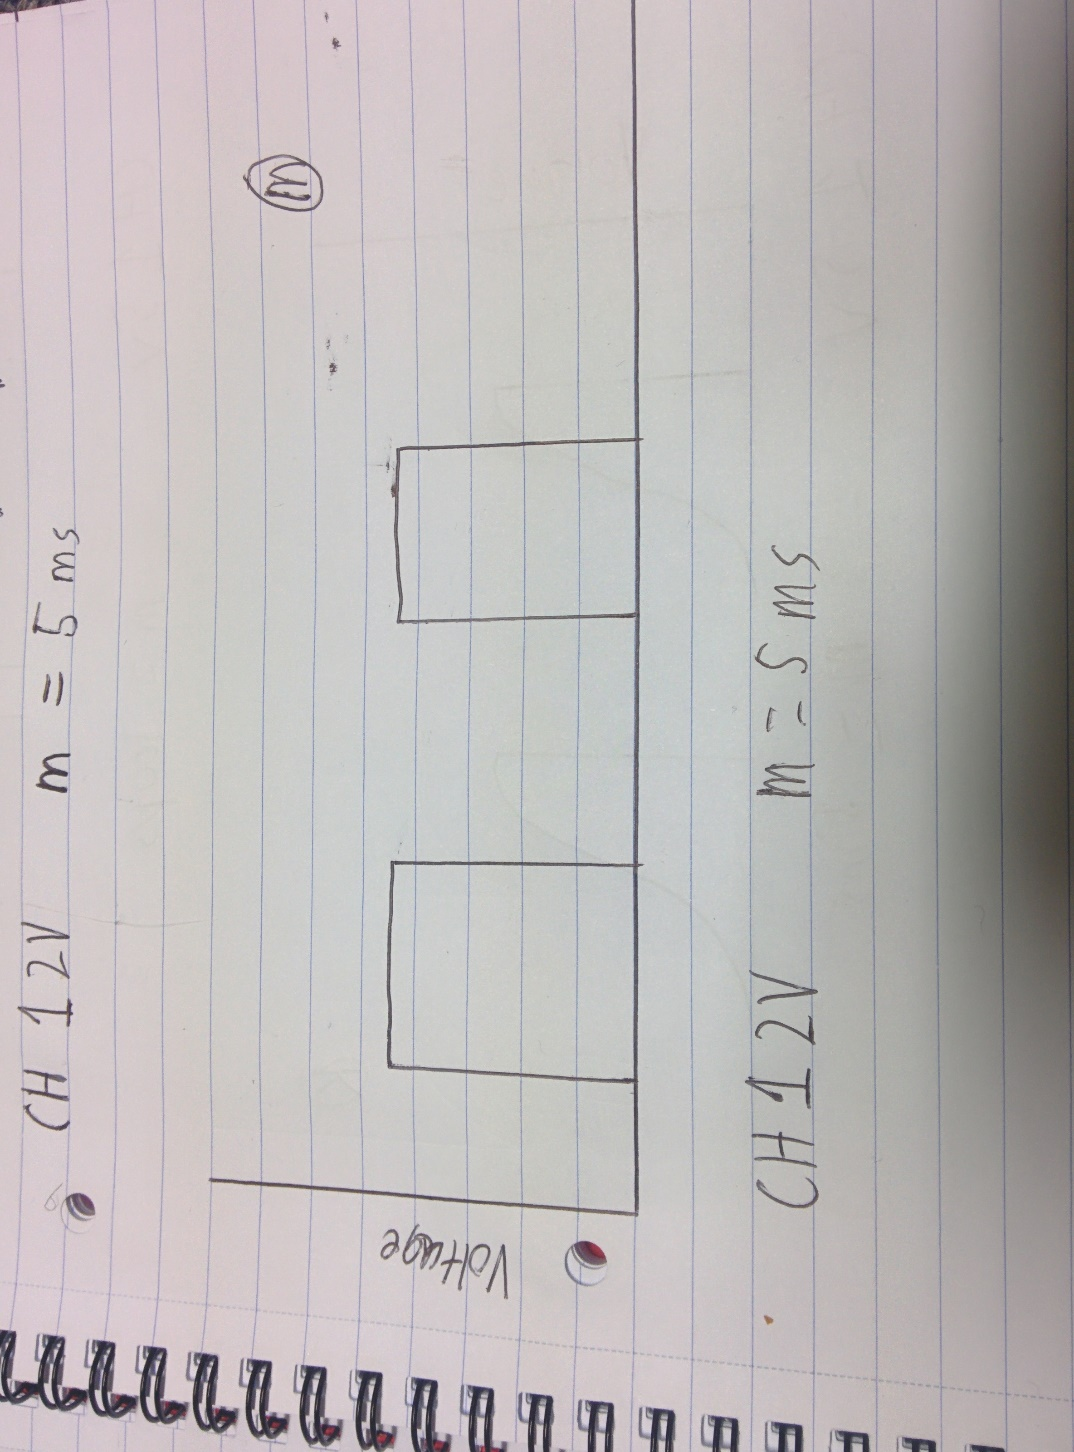 CH 1 2V m = 5 ms
m
Voltage
CH 1 2V m = 5 ms